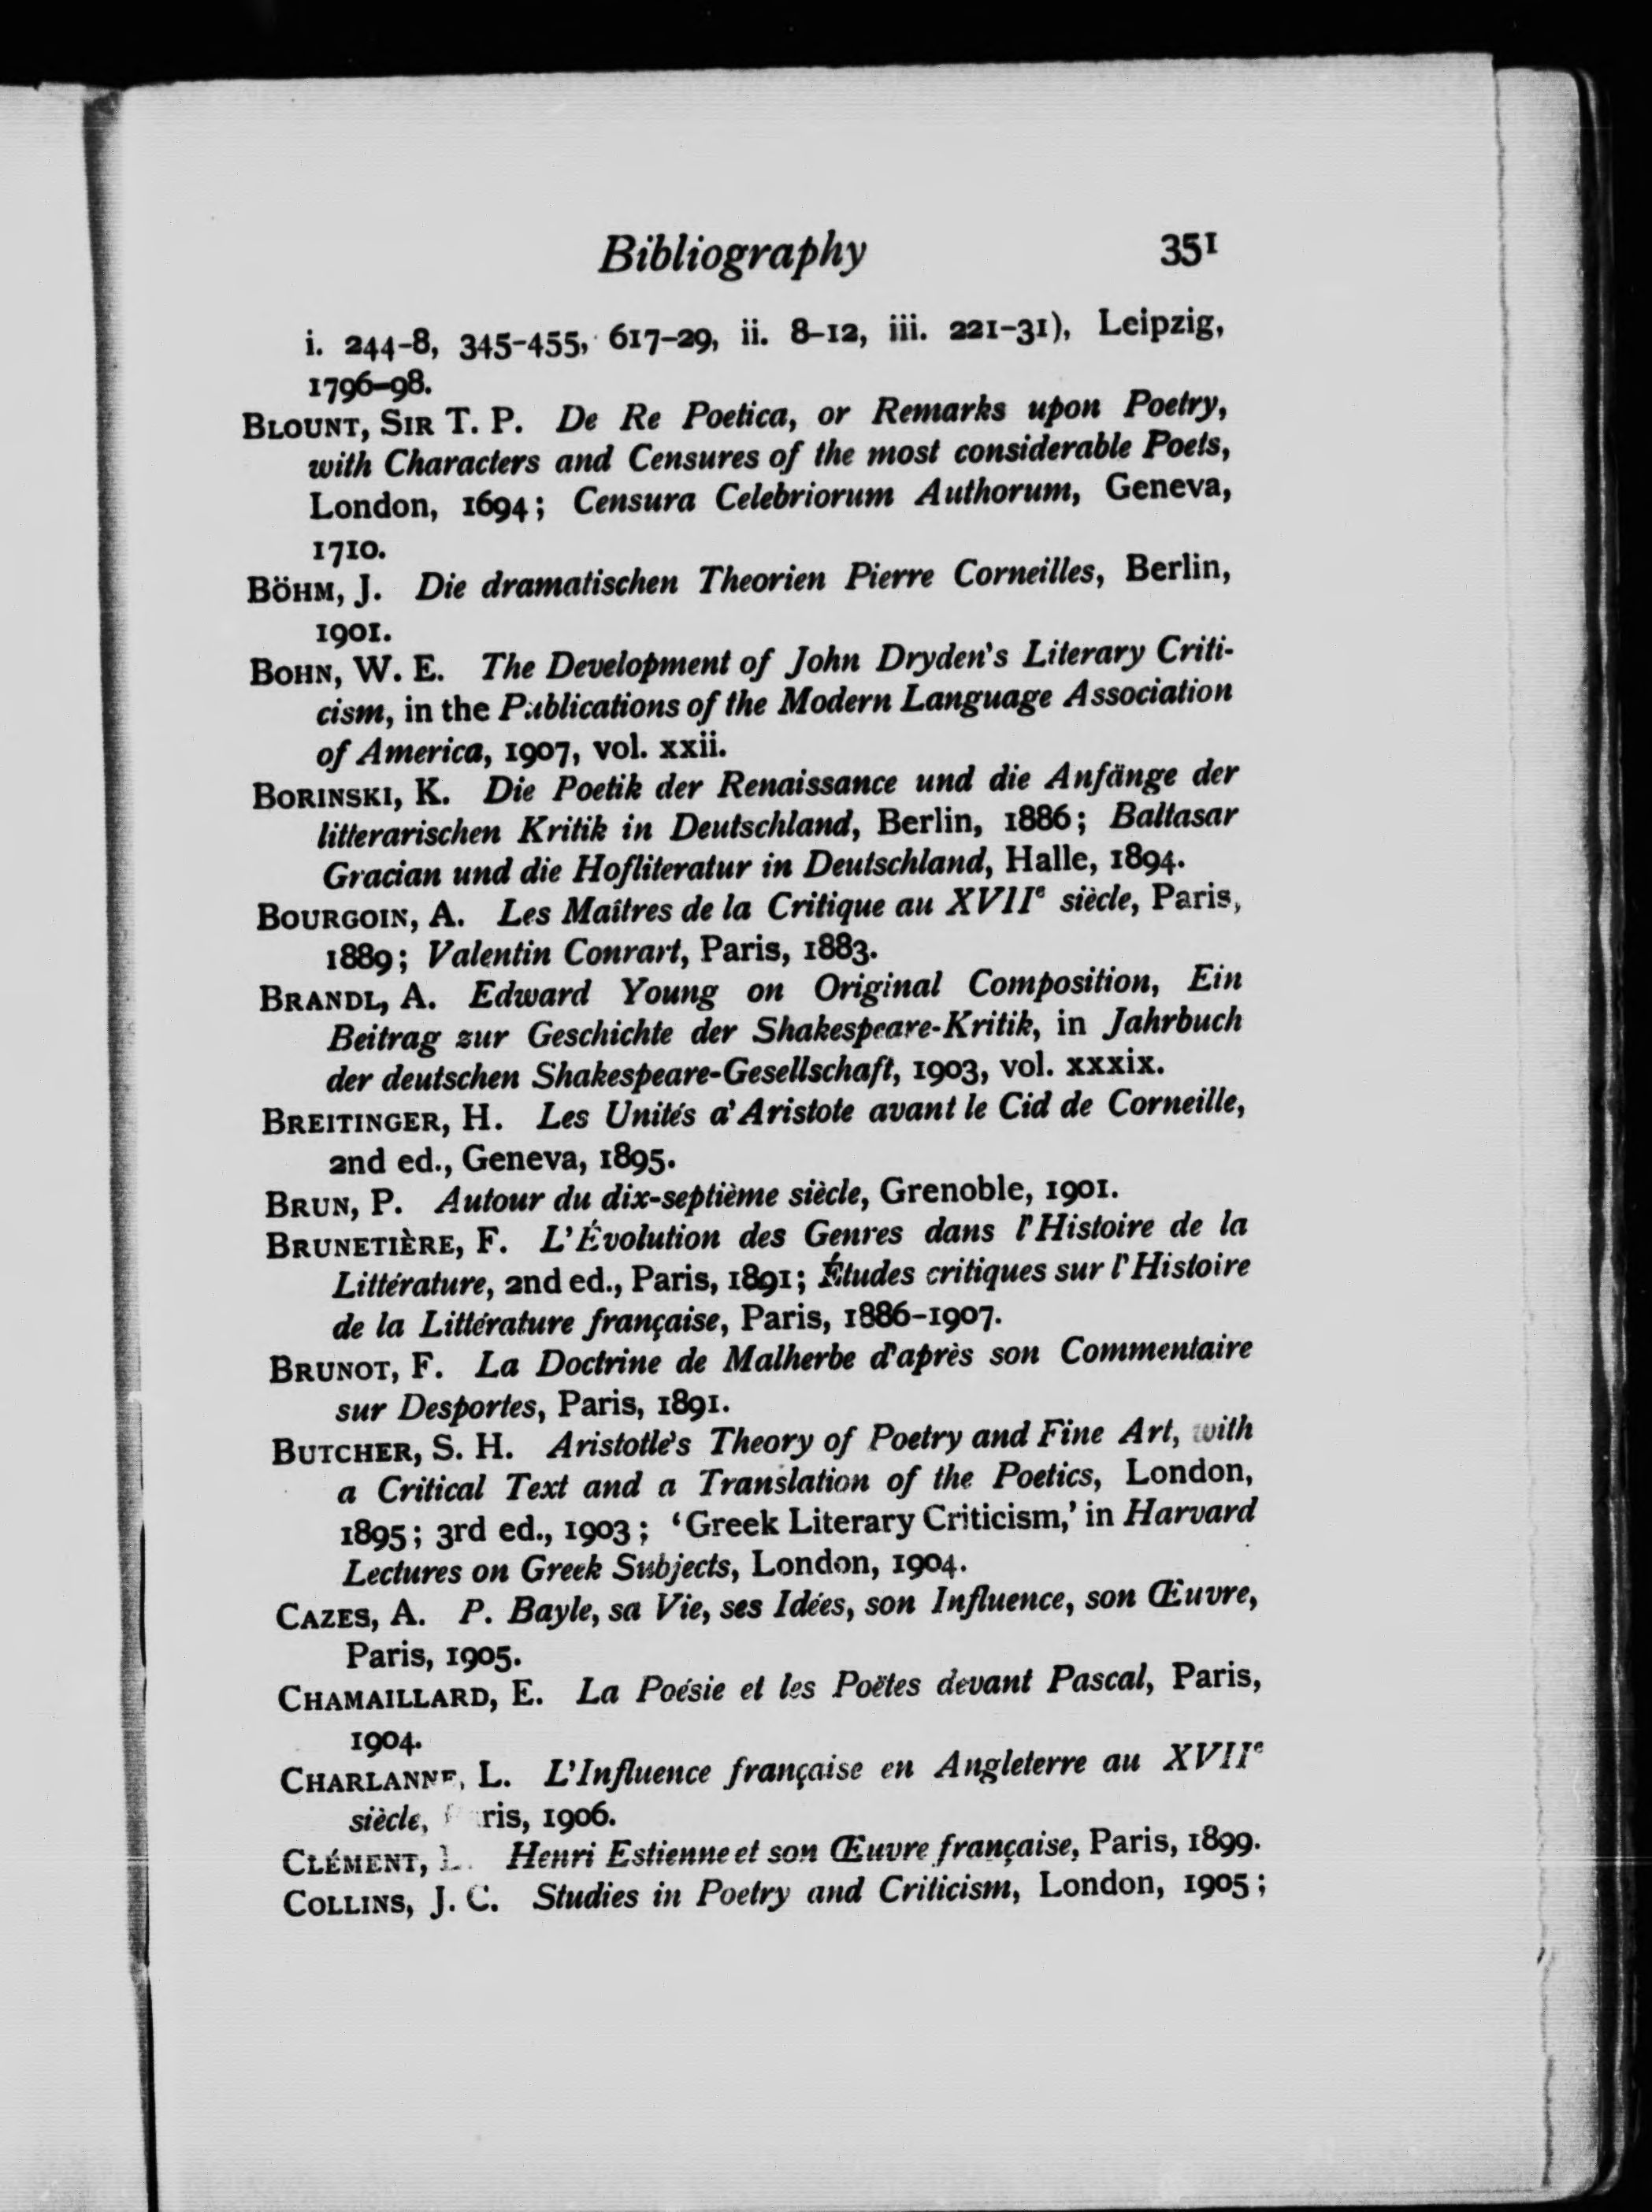 Bibliography 351
i. 244-8, 345-455, 617-29, ii. 8-12, iii. 221-31), Leipzig,
1796-98.
BLOUNT, SIR T. P. De Re Poetica, or Remarks upon Poetry,
with Characters and Censures of the most considerable Poets,
London, 1694; Censura Celebriorum Authorum, Geneva,
1710.
BÖHM, J. Die dramatischen Theorien Pierre Corneilles, Berlin,
1901.
BOHN, W. E. The Development of John Dryden's Literary Criti-
cism, in the Publications of the Modern Language Association
of America, 1907, vol. xxii.
BORINSKI, K. Die Poetik der Renaissance und die Anfänge der
litterarischen Kritik in Deutschland, Berlin, 1886; Baltasar
Gracian und die Hofliteratur in Deutschland, Halle, 1894.
BOURGOIN, A. Les Maîtres de la Critique au XVIIe siècle, Paris,
1889; Valentin Conrart, Paris, 1883.
BRANDL, A. Edward Young on Original Composition, Ein
Beitrag zur Geschichte der Shakespeare-Kritik, in Jahrbuch
der deutschen Shakespeare-Gesellschaft, 1903, vol. xxxix.
BREITINGER, H. Les Unités d'Aristote avant le Cid de Corneille,
2nd ed., Geneva, 1895.
BRUN, P. Autour du dix-septième siècle, Grenoble, 1901.
BRUNETIÈRE, F. L'Évolution des Genres dans l'Histoire de la
Littérature, 2nd ed., Paris, 1891; Études critiques sur l'Histoire
de la Littérature française, Paris, 1886-1907.
BRUNOT, F. La Doctrine de Malherbe d'après son Commentaire
sur Desportes, Paris, 1891.
BUTCHER, S. H. Aristotle's Theory of Poetry and Fine Art, with
a Critical Text and a Translation of the Poetics, London,
1895; 3rd ed., 1903; 'Greek Literary Criticism,' in Harvard
Lectures on Greek Subjects, London, 1904.
CAZES, A. P. Bayle, sa Vie, ses Idées, son Influence, son Œuvre,
Paris, 1905.
CHAMAILLARD, E. La Poésie et les Poëtes devant Pascal, Paris,
1904.
CHARLANNE, L. L'Influence française en Angleterre au XVIIe
siècle, Paris, 1906.
CLÉMENT, L. Henri Estienne et son Œuvre française, Paris, 1899.
COLLINS, J. C. Studies in Poetry and Criticism, London, 1905;